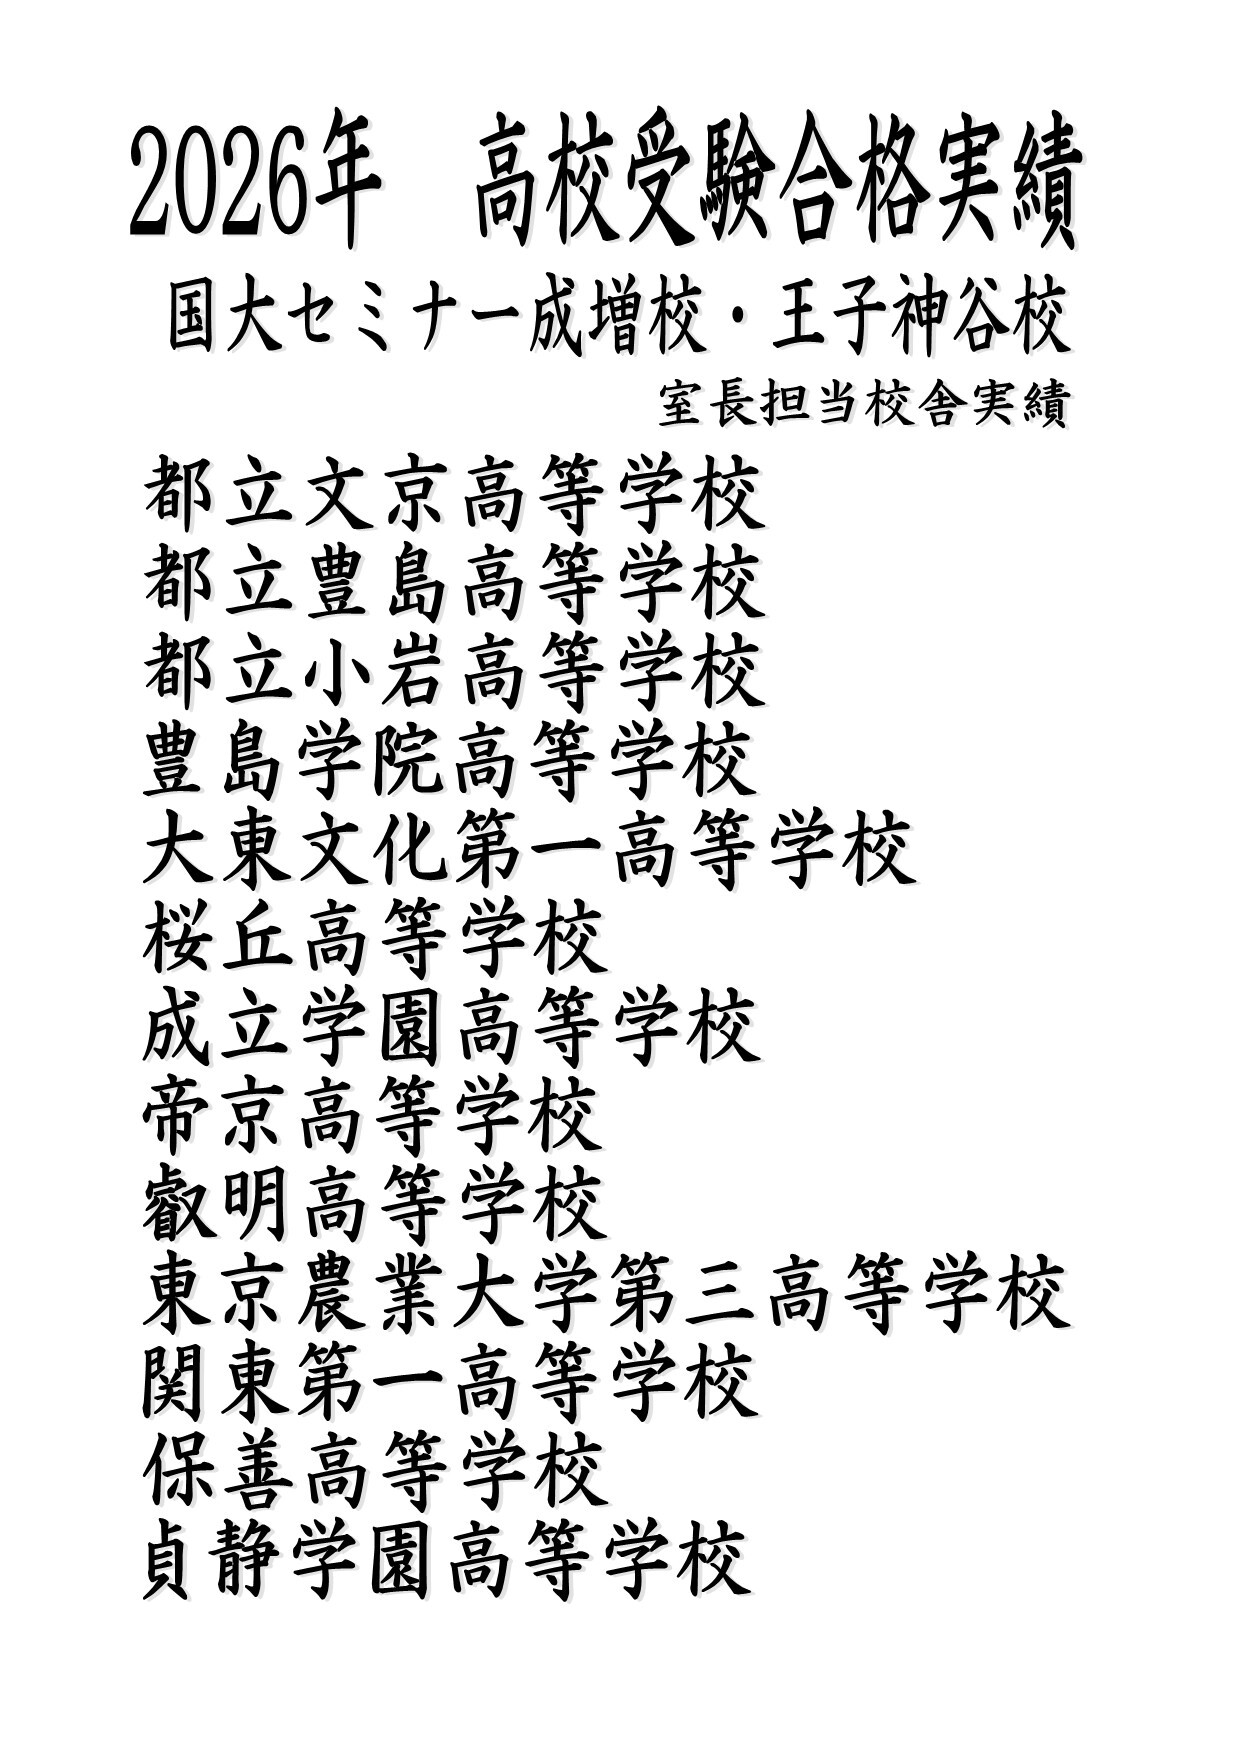 2026年　高校受験合格実績
国大セミナー成増校・王子神谷校
室長担当校舎実績
都立文京高等学校
都立豊島高等学校
都立小岩高等学校
豊島学院高等学校
大東文化第一高等学校
桜丘高等学校
成立学園高等学校
帝京高等学校
叡明高等学校
東京農業大学第三高等学校
関東第一高等学校
保善高等学校
貞静学園高等学校